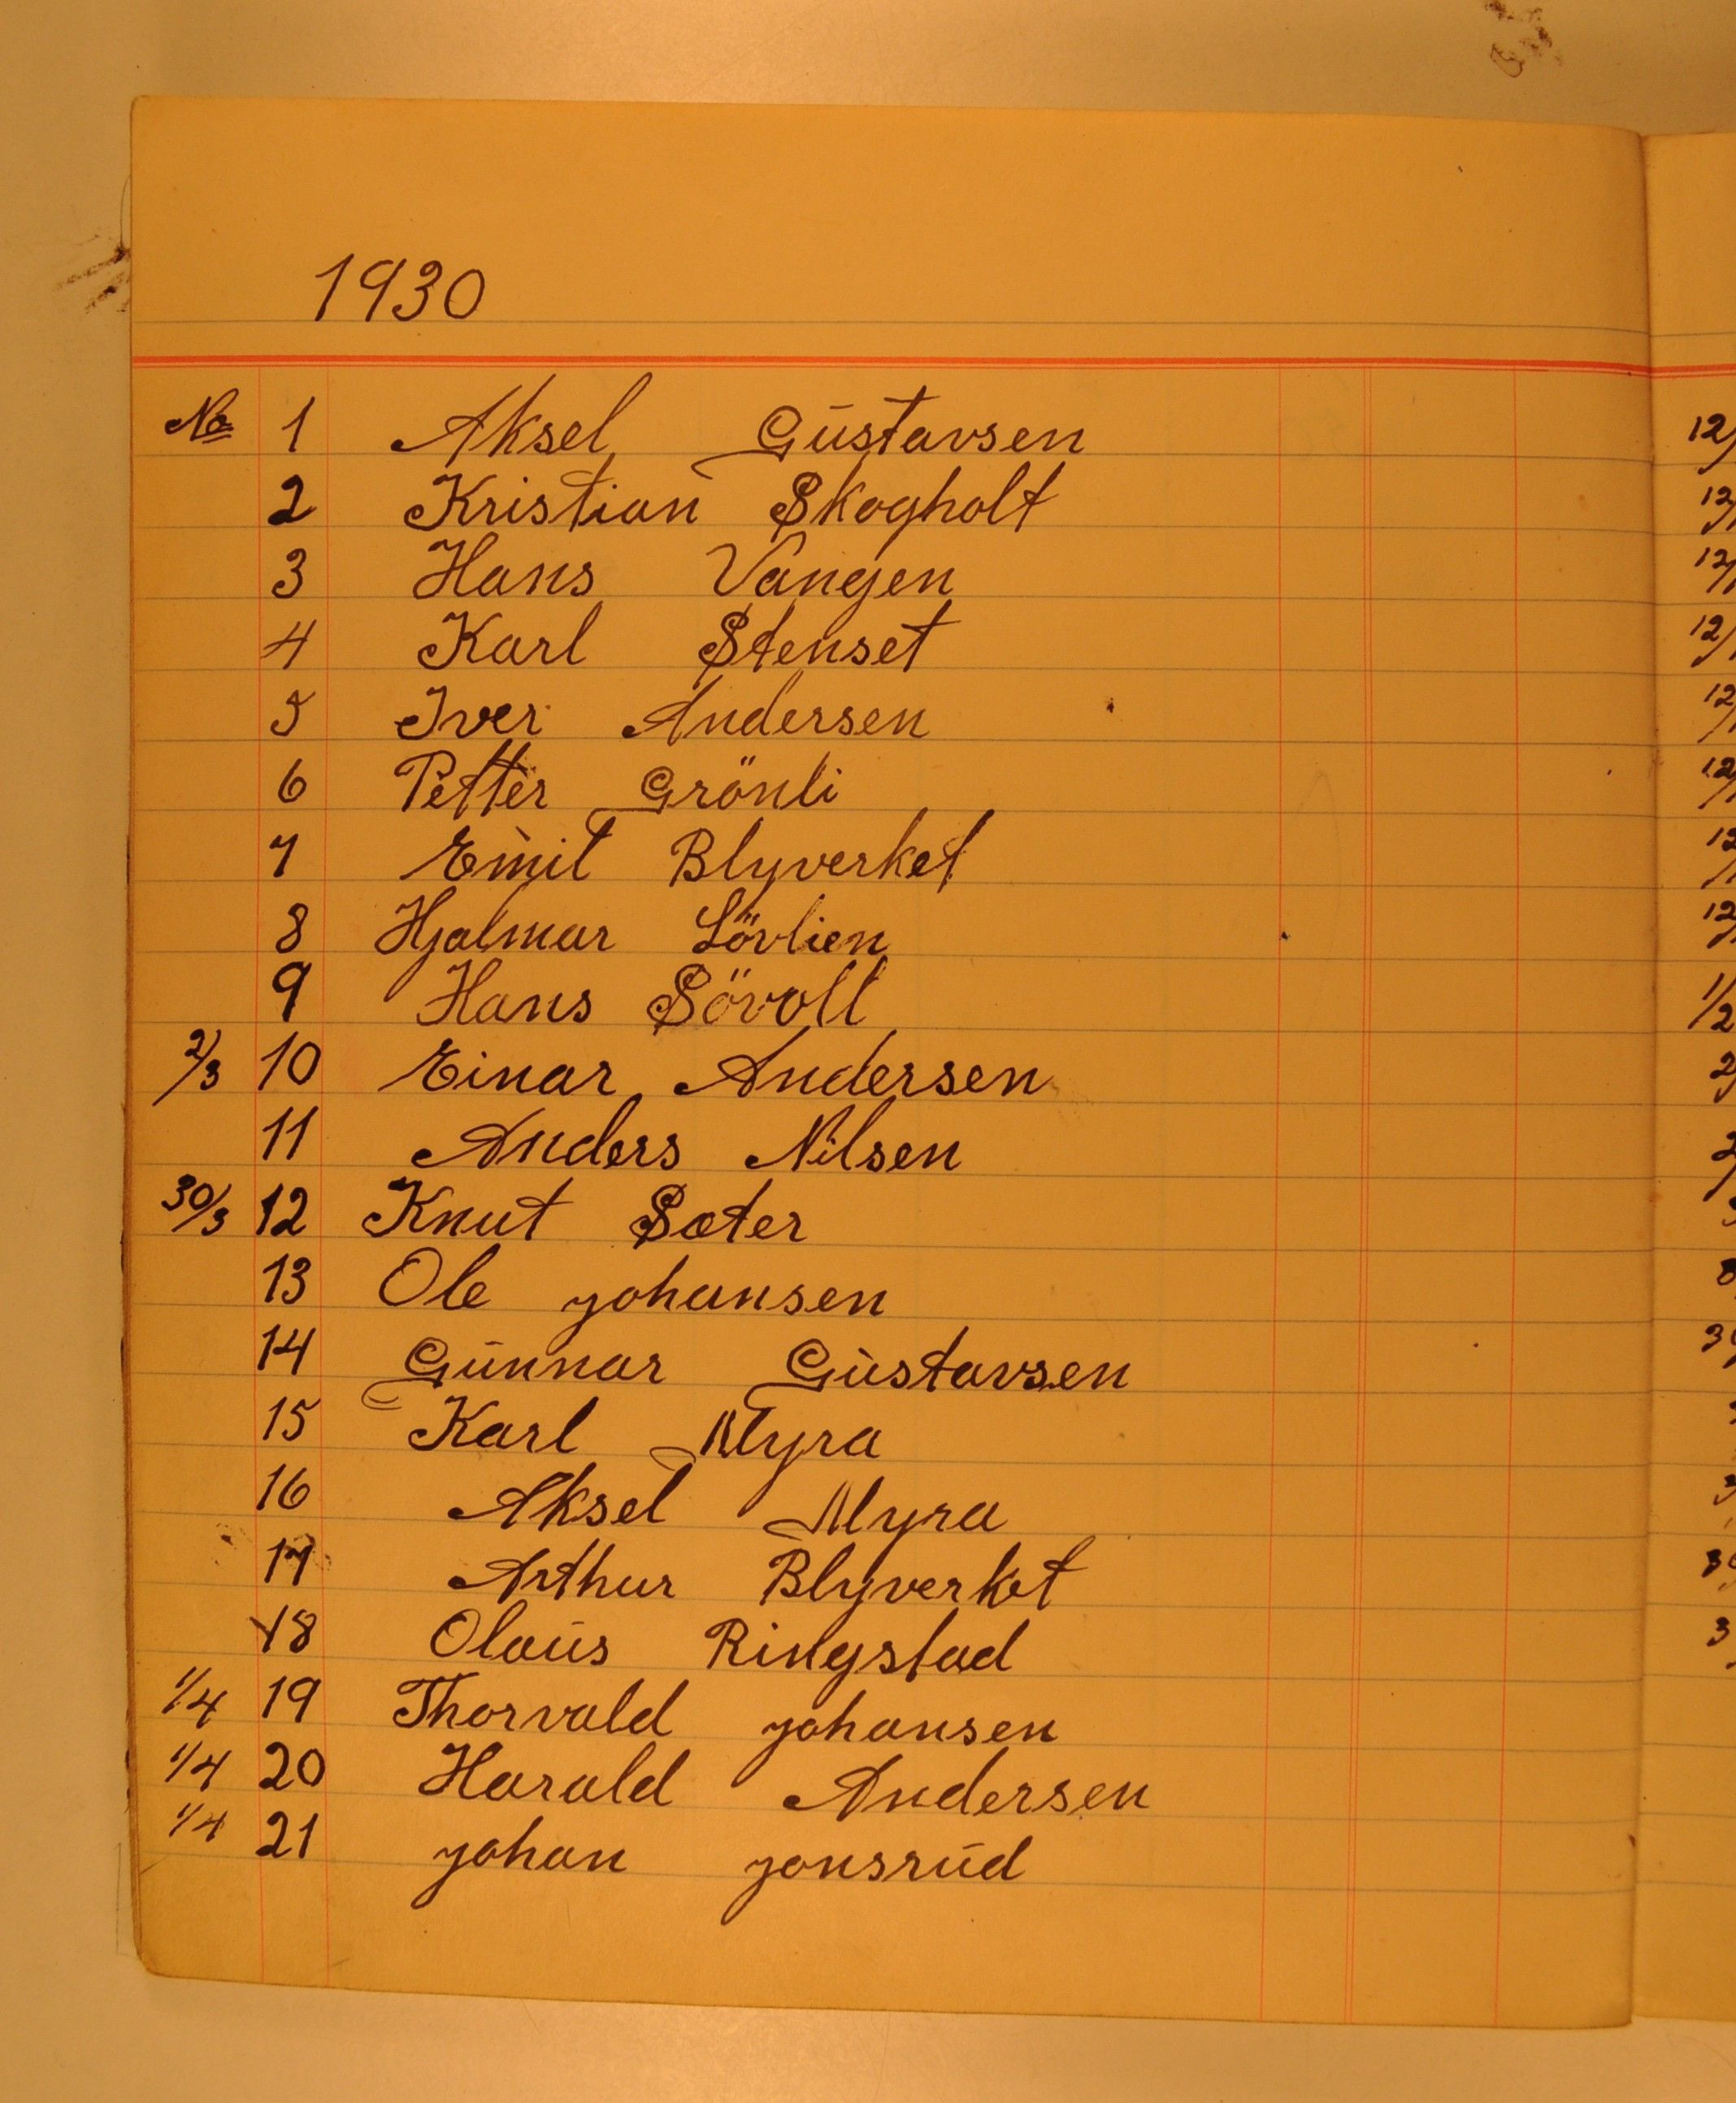 1930
No 1 Aksel Gustavsen
2 Kristian Skogholt
3 Hans Vangen
4 Karl Stenset
5 Iver Andersen
6 Petter Grönli
7 Emil Blyverket
8 Hjalmar Lövlien
9 Hans Sövoll
2/3 10 Einar Andersen
11 Anders Nilsen
30/3 12 Knut Sæter
13 Ole Johansen
14 Gunnar Gustavsen
15 Karl Myra
16 Aksel Myra
17 Arthur Blyverket
18 Olaus Ringstad
1/4 19 Thorvald Johansen
1/4 20 Harald Andersen
1/4 21 Johan Jonsrud